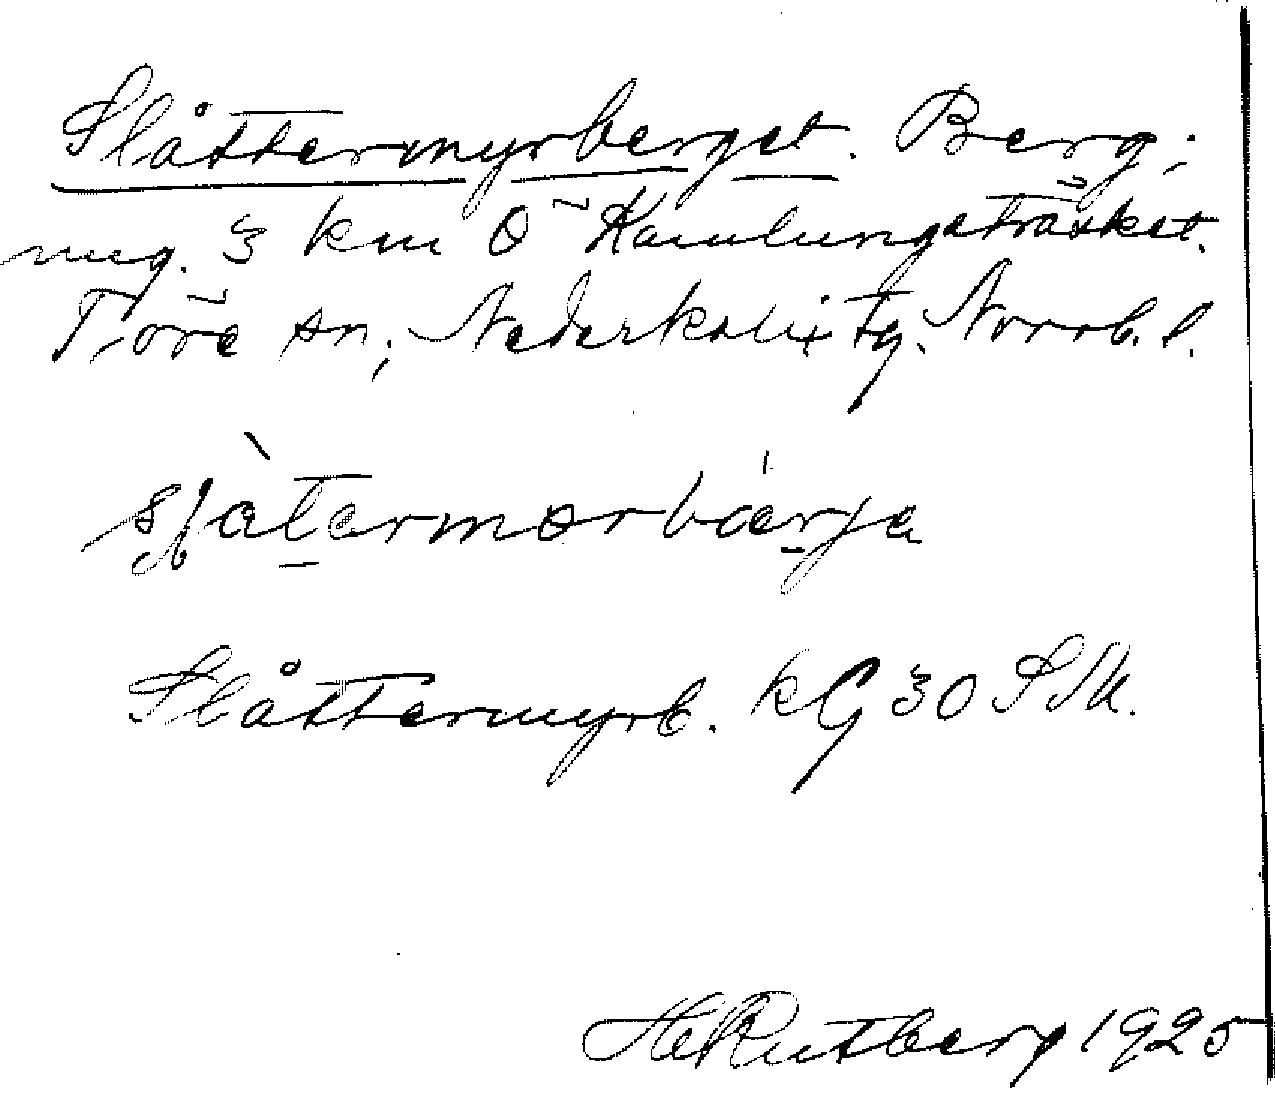 Slåttermyrberget. Berg;
ung. 3 km Ö Kamlungeträsket.
Töre sn; Nederkalix tg. Norrb. l.
Slåttermyrb. kG 30 SMk.
H Rutberg 1925